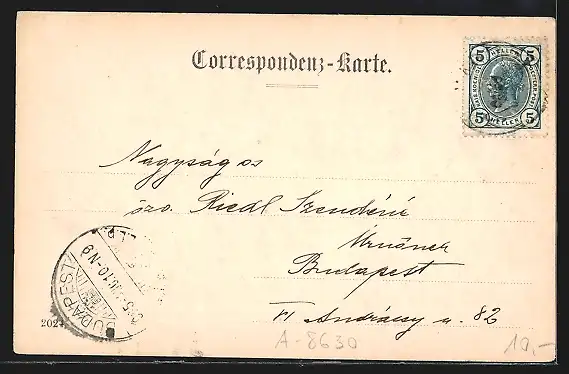 Correspondenz-Karte.
5 HELLER 5
5 HELLER 5
Nagyságos
özv. Riedl Szendéné
Úrnőnek
Budapest
VI Andrássy u. 82
BUDAPEST
202
A-8630
10,-